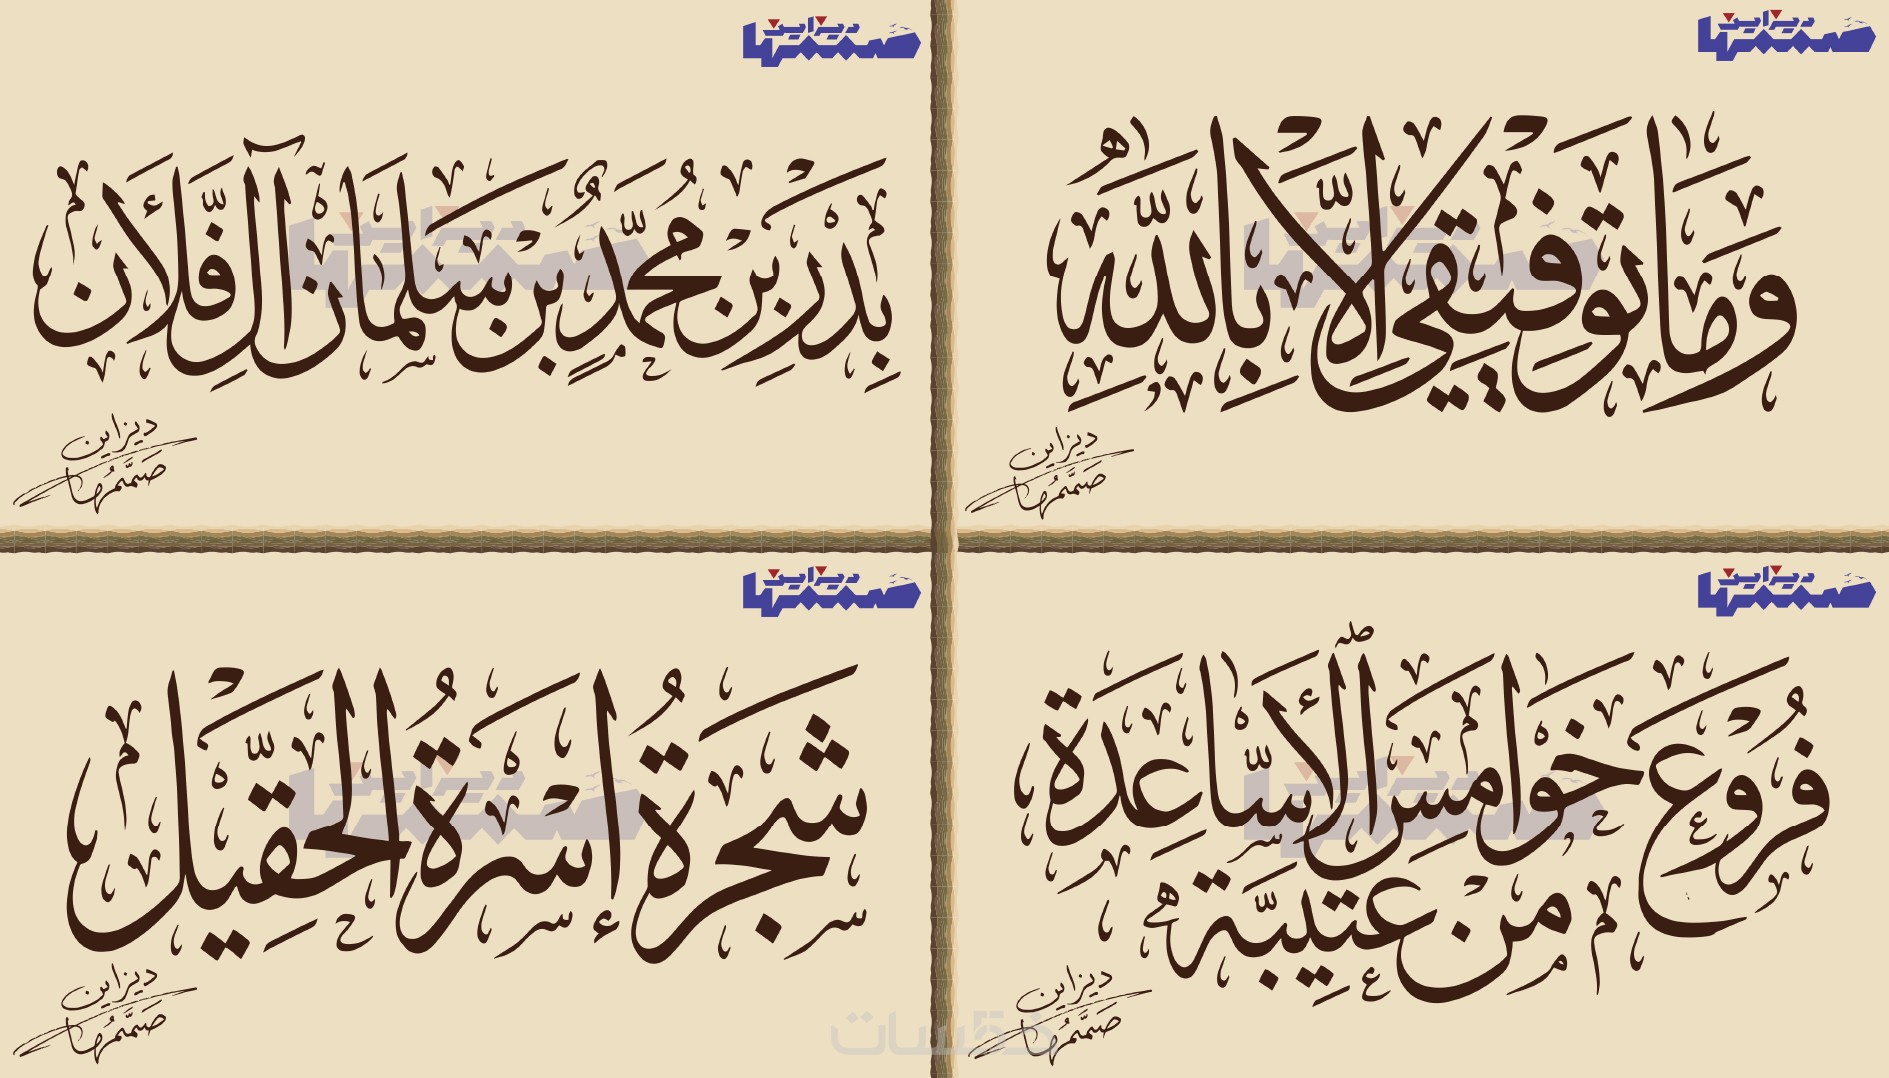 ديزاين
صممتها
وَمَا تَوْفِيْقِي إِلَّا بِاللَّهِ
ديزاين
صممتها
ديزاين
صممتها
بَدْر بِن مُحَمَّد بِن سَلمَان آل فَلَّان
ديزاين
صممتها
ديزاين
صممتها
فُرُوع خَوَامِس الأسَاعِدَة
مِنْ عتيبَة
ديزاين
صممتها
ديزاين
صممتها
شَجَرَةُ إسْرَةُ الحقيّل
ديزاين
صممتها
خمسات